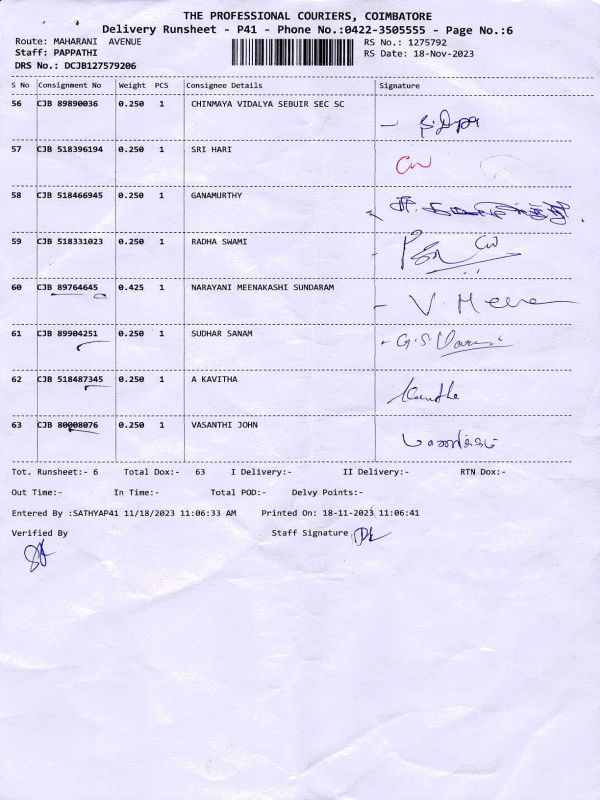 THE PROFESSIONAL COURIERS, COIMBATORE
Delivery Runsheet - P41 - Phone No.:0422-3505555 - Page No.:6
Route: MAHARANI AVENUE RS No.: 1275792
Staff: PAPPATHI RS Date: 18-Nov-2023
DRS No.: DCJB127579206
S No Consignment No Weight PCS Consignee Details Signature
56 CJB 89890036 0.250 1 CHINMAYA VIDALYA SEBUIR SEC SC
57 CJB 518396194 0.250 1 SRI HARI
58 CJB 518466945 0.250 1 GANAMURTHY
59 CJB 518331023 0.250 1 RADHA SWAMI
60 CJB 89764645 0.425 1 NARAYANI MEENAKASHI SUNDARAM V. Meena
61 CJB 89904251 0.250 1 SUDHAR SANAM
62 CJB 518487345 0.250 1 A KAVITHA
63 CJB 80008076 0.250 1 VASANTHI JOHN
Tot. Runsheet:- 6 Total Dox:- 63 I Delivery:- II Delivery:- RTN Dox:-
Out Time:- In Time:- Total POD:- Delvy Points:-
Entered By :SATHYAP41 11/18/2023 11:06:33 AM Printed On: 18-11-2023 11:06:41
Verified By Staff Signature